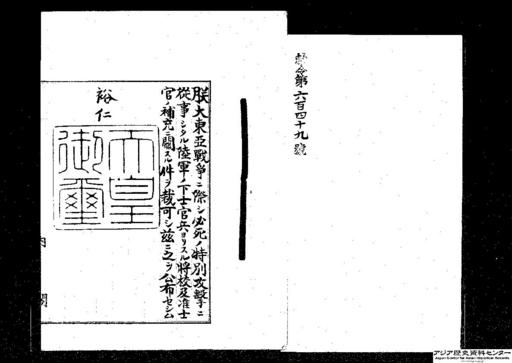 勅令第六百四十九號
朕大東亞戰爭ニ際シ必死ノ特別攻擊ニ
從事シタル陸軍ノ下士官兵ヨリスル將校及准士
官ノ補充ニ關スル件ヲ裁可シ茲ニ之ヲ公布セシム
裕仁
天皇
御璽
內閣
アジア歴史資料センター
Japan Center for Asian Historical Records